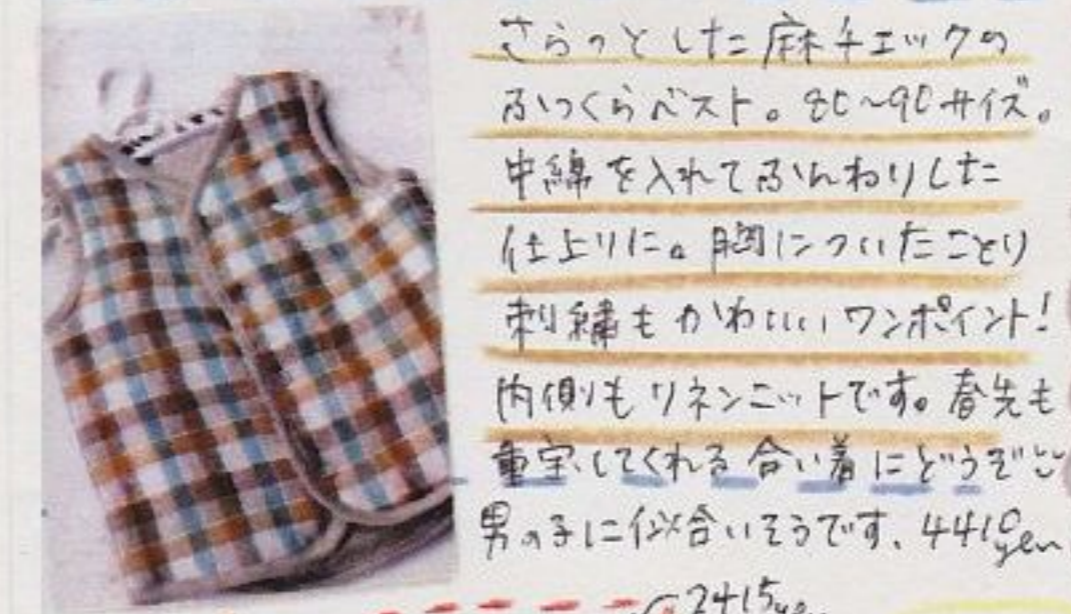 さらっとした麻チェックの
ふっくらベスト。80~90サイズ。
中綿を入れてふんわりした
仕上りに。胸についたことり
刺繍もかわいいワンポイント!
内側もリネンニットです。春先も
重宝してくれる合い着にどうぞ
男の子に似合いそうです、4410yen
2415yen